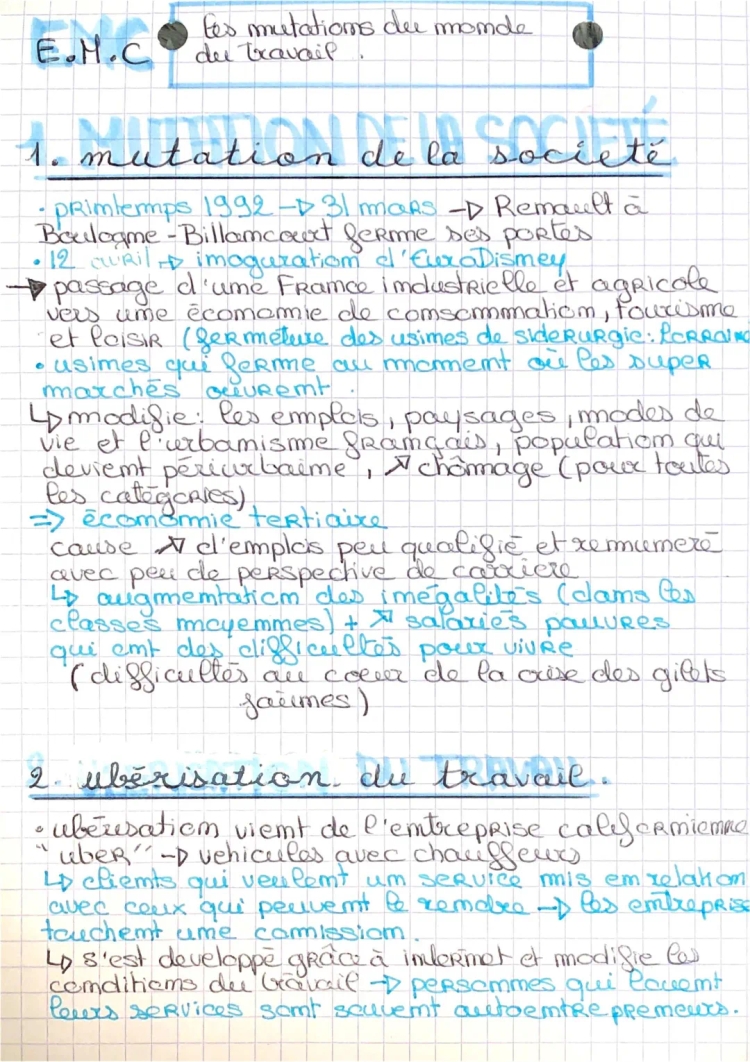 EMC
E.M.C
Les mutations du monde
du travail.
1. MUTATION DE LA SOCIETÉ
1. mutation de la societé
• printemps 1992 → 31 mars → Renault à
Boulogne-Billancourt ferme ses portes
• 12 avril → imoguration d'EuroDismey
→ passage d'une France industrielle et agricole
vers une économie de consommation, tourisme
et loisir (fermeture des usines de siderurgie: Lorraine
• usines qui ferme au moment où les super
marchés ouvrent.
↳ modifie: les emplois, paysages, modes de
vie et l'urbanisme français, population qui
devient périurbaine, ↗ chômage (pour toutes
les catégories)
=> économie tertiaire
cause ↗ d'emplois peu qualifié et remmuneré
avec peu de perspective de carrière
↳ augmentation des inégalités (dans les
classes moyennes) + ↗ salariés pauvres
qui ont des difficultés pour vivre
(difficultés au coeur de la crise des gilets
jaunes)
2. DU TRAVAIL
2. ubérisation du travail.
• ubérisation vient de l'entreprise californienne
"uber" → vehicules avec chauffeurs
↳ clients qui veulent un service mis en relation
avec ceux qui peuvent le rendre → les entreprise
touchent une comission.
↳ s'est developpé grâce à internet et modifie les
conditions du travail → personnes qui louent
leurs services sont souvent autoentrepreneurs.